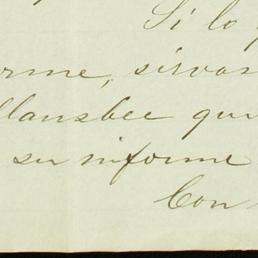 Si lo
orme, sirvas
llansbee qui
su informe
Con